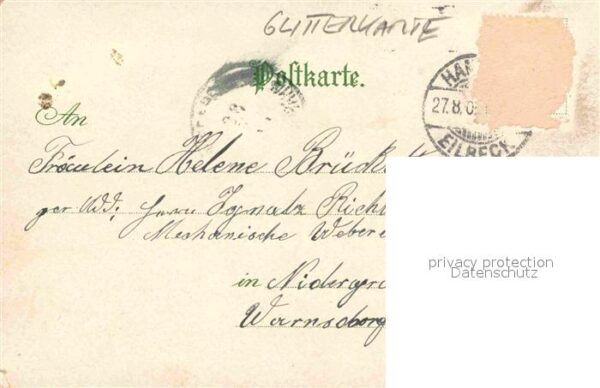 GLITTERKARTE
Postkarte.
HAM
27.8.0
EILBECK.
An
Fräulein Helene Brück
per Add: Herrn Ignatz Rich
Mechanische Webere
in Nidergr
Warnsdorf
privacy protection
Datenschutz